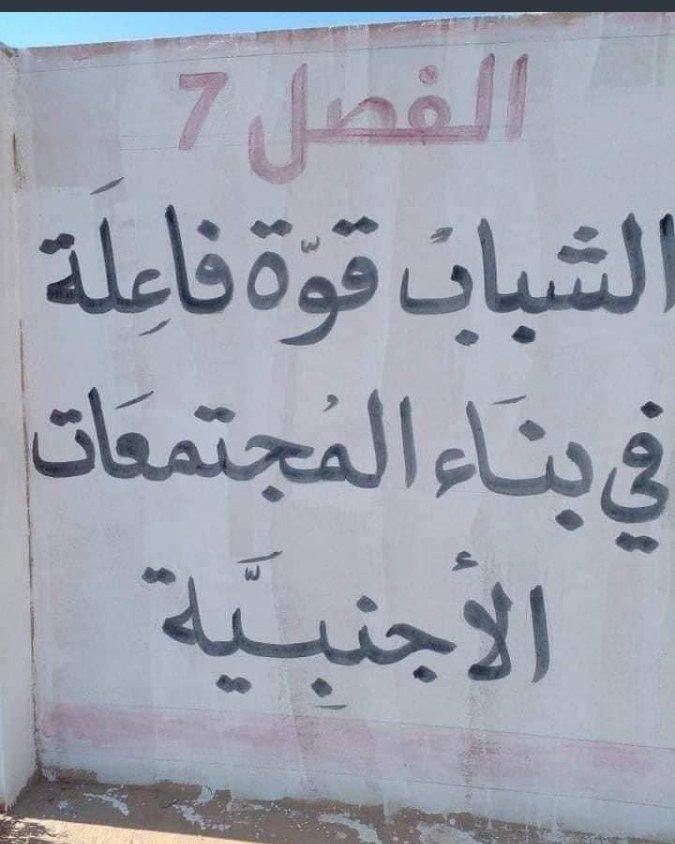 الفصل 7
الشبابُ قوّة فاعِلَة
في بنَاء المُجتمعَات
الأجنبِيَّة